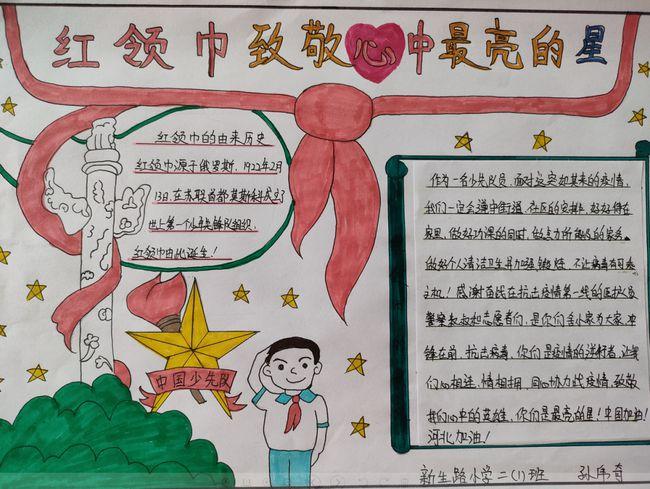 红领巾致敬心中最亮的星
红领巾的由来历史
红领巾源于俄罗斯，1922年2月
13日，在苏联首都莫斯科成立了
世上第一个少年先锋队组织，
红领巾由此诞生！
中国少先队
作为一名少先队员，面对这突如其来的疫情，
我们一定会遵守街道、社区的安排，好好待在
家里，做好功课的同时，做点力所能及的家务。
做好个人清洁卫生并加强锻炼，不让病毒有可乘
之机！感谢奋战在抗击疫情第一线的医护人员
警察叔叔和志愿者们，是你们舍小家为大家，冲
锋在前，抗击病毒，你们是疫情的逆行者，让我
们心相连，情相拥，同心协力战疫情，致敬
我们心中的英雄，你们是最亮的星！中国加油！
河北加油！
新生路小学二(1)班 孙伟奇